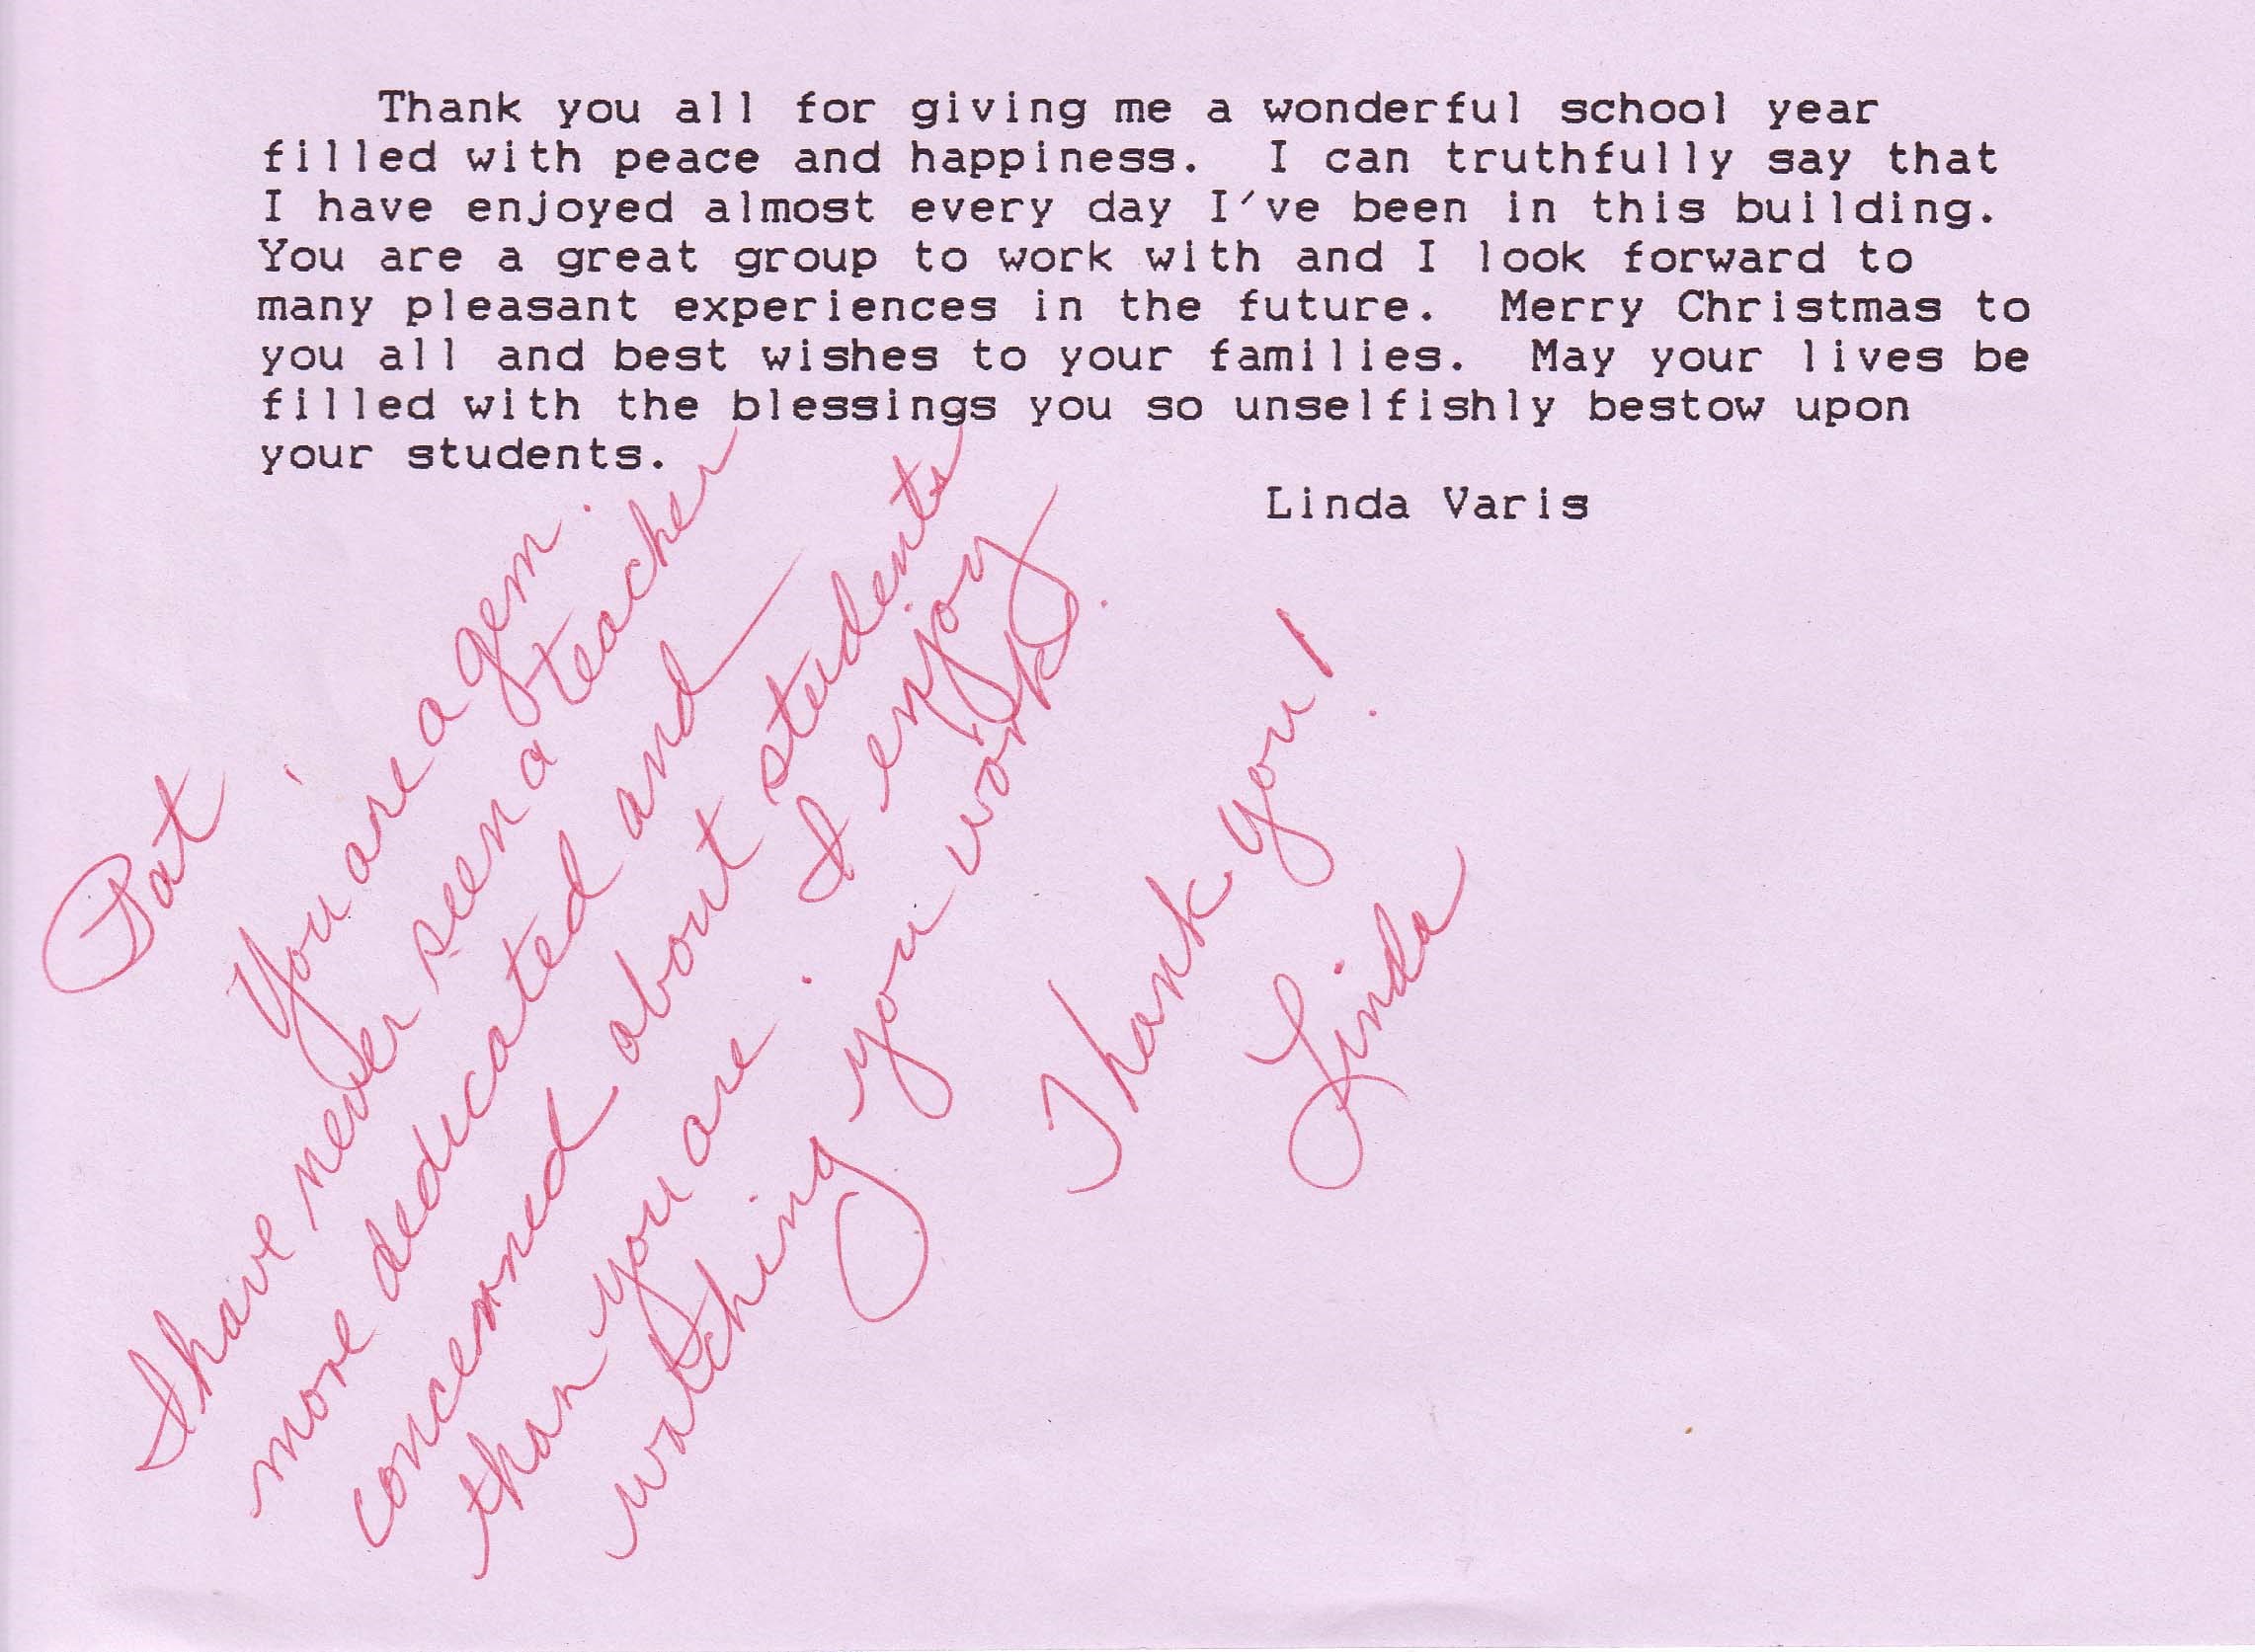 Thank you all for giving me a wonderful school year
filled with peace and happiness.  I can truthfully say that
I have enjoyed almost every day I've been in this building.
You are a great group to work with and I look forward to
many pleasant experiences in the future.  Merry Christmas to
you all and best wishes to your families.  May your lives be
filled with the blessings you so unselfishly bestow upon
your students.
Linda Varis
Pat,
You are a gem.
I have never seen a teacher
more dedicated and
concerned about students
than you are. I enjoy
watching you work.
Thank you!
Linda